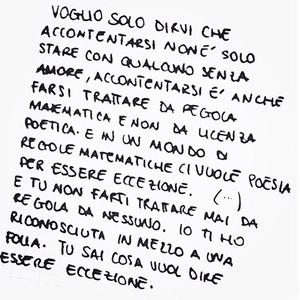 VOGLIO SOLO DIRVI CHE
ACCONTENTARSI NON É SOLO
STARE CON QUALCUNO SENZA
AMORE, ACCONTENTARSI É ANCHE
FARSI TRATTARE DA REGOLA
MATEMATICA E NON DA LICENZA
POETICA. E IN UN MONDO DI
REGOLE MATEMATICHE CI VUOLE POESIA
PER ESSERE ECCEZIONE. (...)
E TU NON FARTI TRATTARE MAI DA
REGOLA DA NESSUNO. IO TI HO
RICONOSCIUTA IN MEZZO A UNA
FOLLA. TU SAI COSA VUOL DIRE
ESSERE ECCEZIONE.